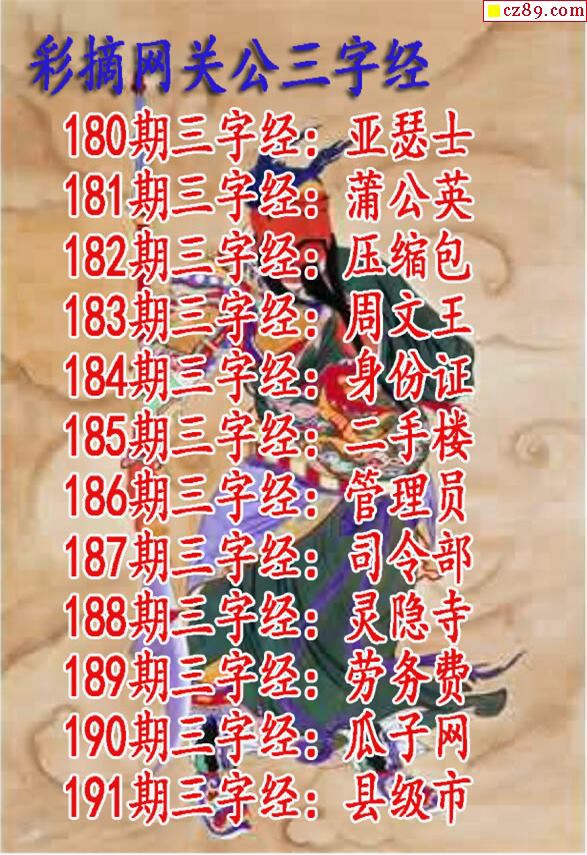 cz89.com
彩摘网关公三字经
180期三字经：亚瑟士
181期三字经：蒲公英
182期三字经：压缩包
183期三字经：周文王
184期三字经：身份证
185期三字经：二手楼
186期三字经：管理员
187期三字经：司令部
188期三字经：灵隐寺
189期三字经：劳务费
190期三字经：瓜子网
191期三字经：县级市